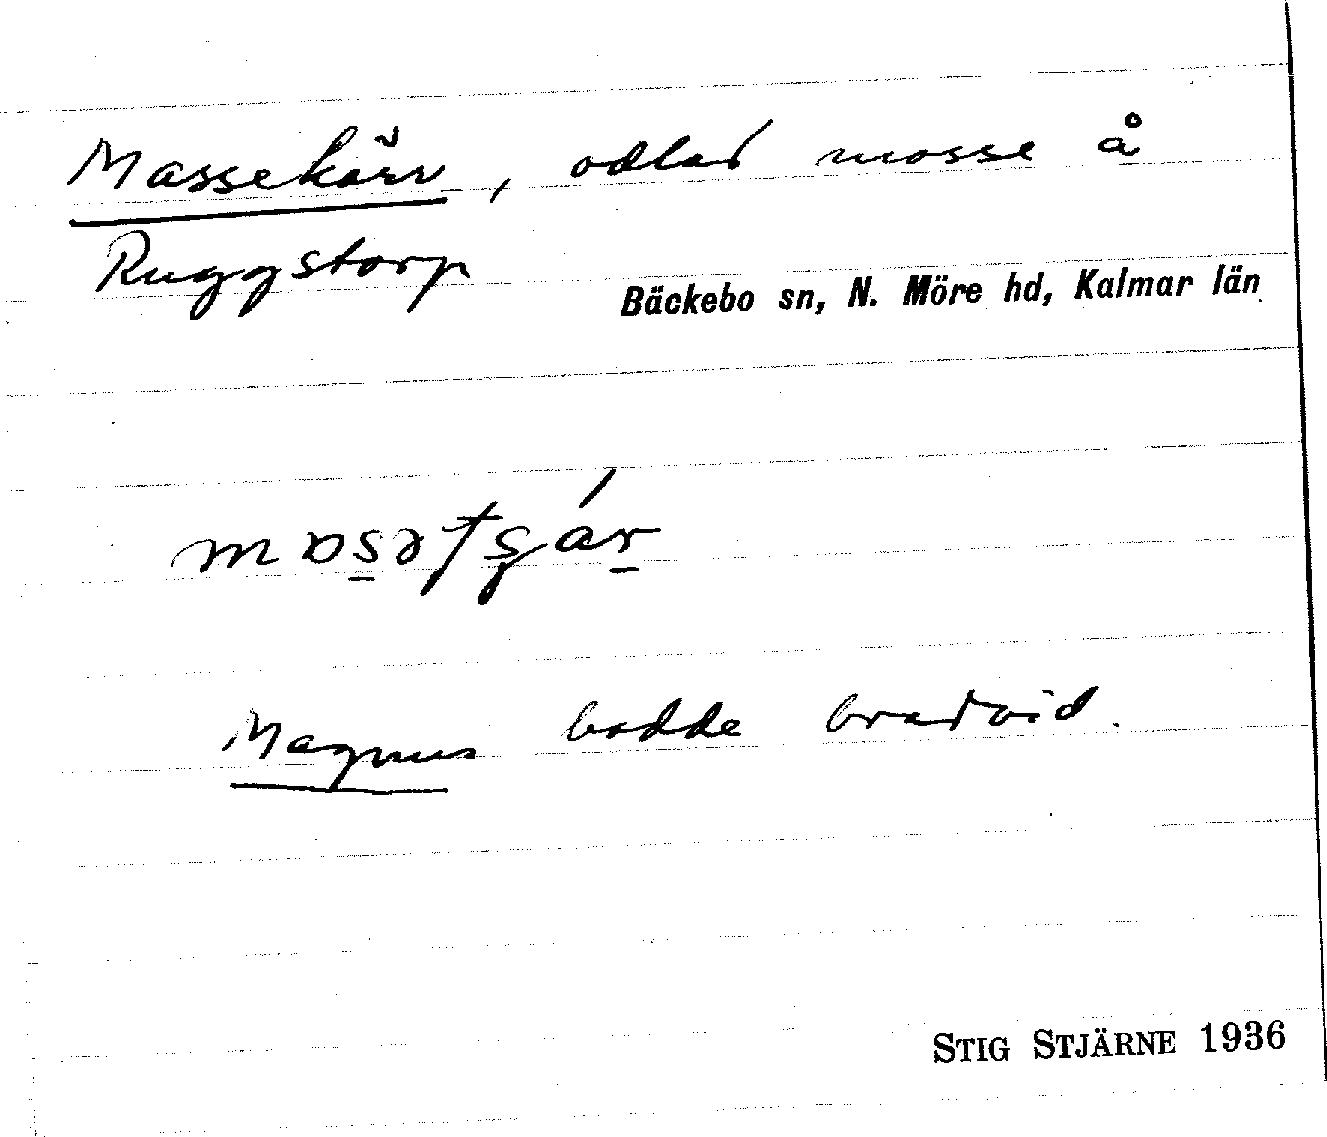 Massekärr, odlad mosse å
Ruggstorp
Bäckebo sn, N. Möre hd, Kalmar län
Magnus bodde bredvid.
STIG STJÄRNE 1936